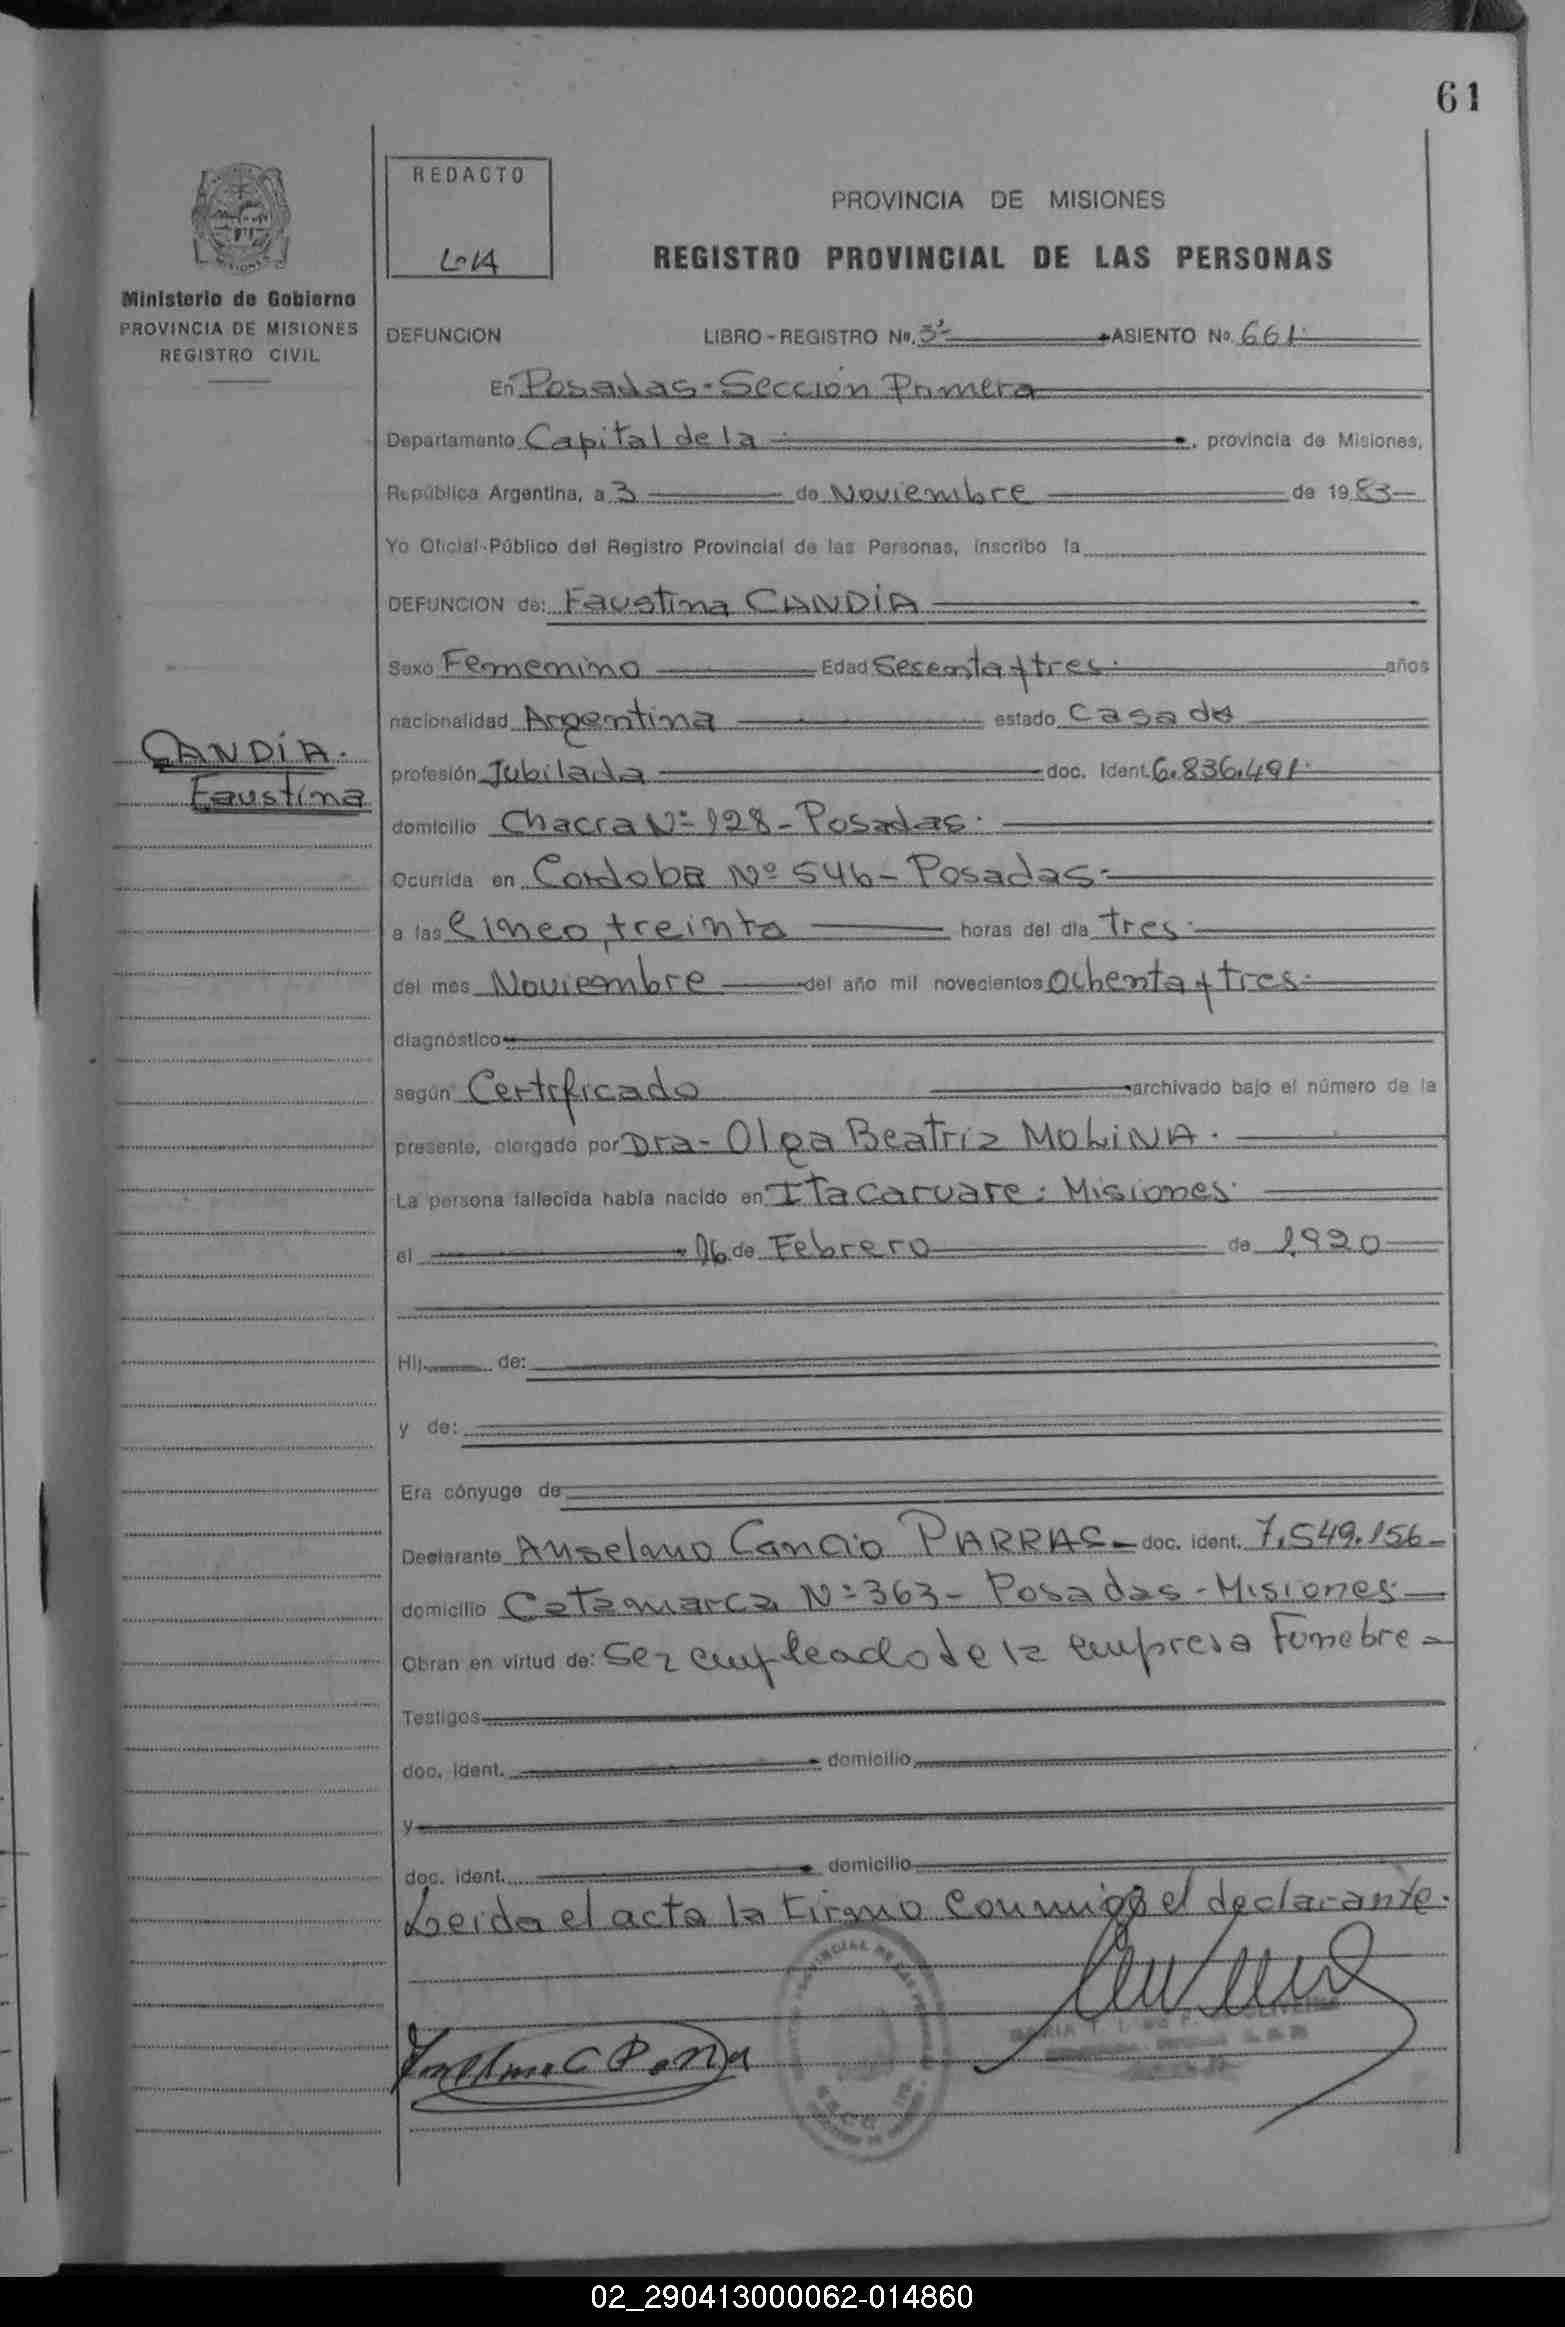 61
REDACTO
PROVINCIA DE MISIONES
REGISTRO PROVINCIAL DE LAS PERSONAS
Ministerio de Gobierno
PROVINCIA DE MISIONES
REGISTRO CIVIL
DEFUNCION LIBRO - REGISTRO No. 3º ASIENTO No. 661
En Posadas - Sección Primera
Departamento Capital de la , provincia de Misiones,
República Argentina, a 3 de Noviembre de 1983
Yo Oficial Público del Registro Provincial de las Personas, inscribo la
DEFUNCION de: Faustina CANDIA
Sexo Femenino Edad Sesenta y tres años
nacionalidad Argentina estado Casada
CANDÍA.
Faustina
profesión Jubilada doc. Ident. 6.836.491
domicilio Chacra Nº 128 - Posadas.
Ocurrida en Cordoba Nº 546 - Posadas
a las Cinco, treinta horas del día tres
del mes Noviembre del año mil novecientos Ochenta y tres
diagnóstico
según Certificado archivado bajo el número de la
presente, otorgado por Dra - Olga Beatriz MOLINA.
La persona fallecida había nacido en Itacaruare: Misiones
el 16 de Febrero de 1,920
Hij de:
y de:
Era cónyuge de
Declarante Anselmo Cancio PARRAS - doc. ident. 7.549.156 -
domicilio Catamarca Nº 363 - Posadas - Misiones
Obran en virtud de: ser empleado de la empresa Funebre -
Testigos
doc. ident. domicilio
y
doc. ident. domicilio
Leida el acta la firmo conmigo el declarante.
02_290413000062-014860